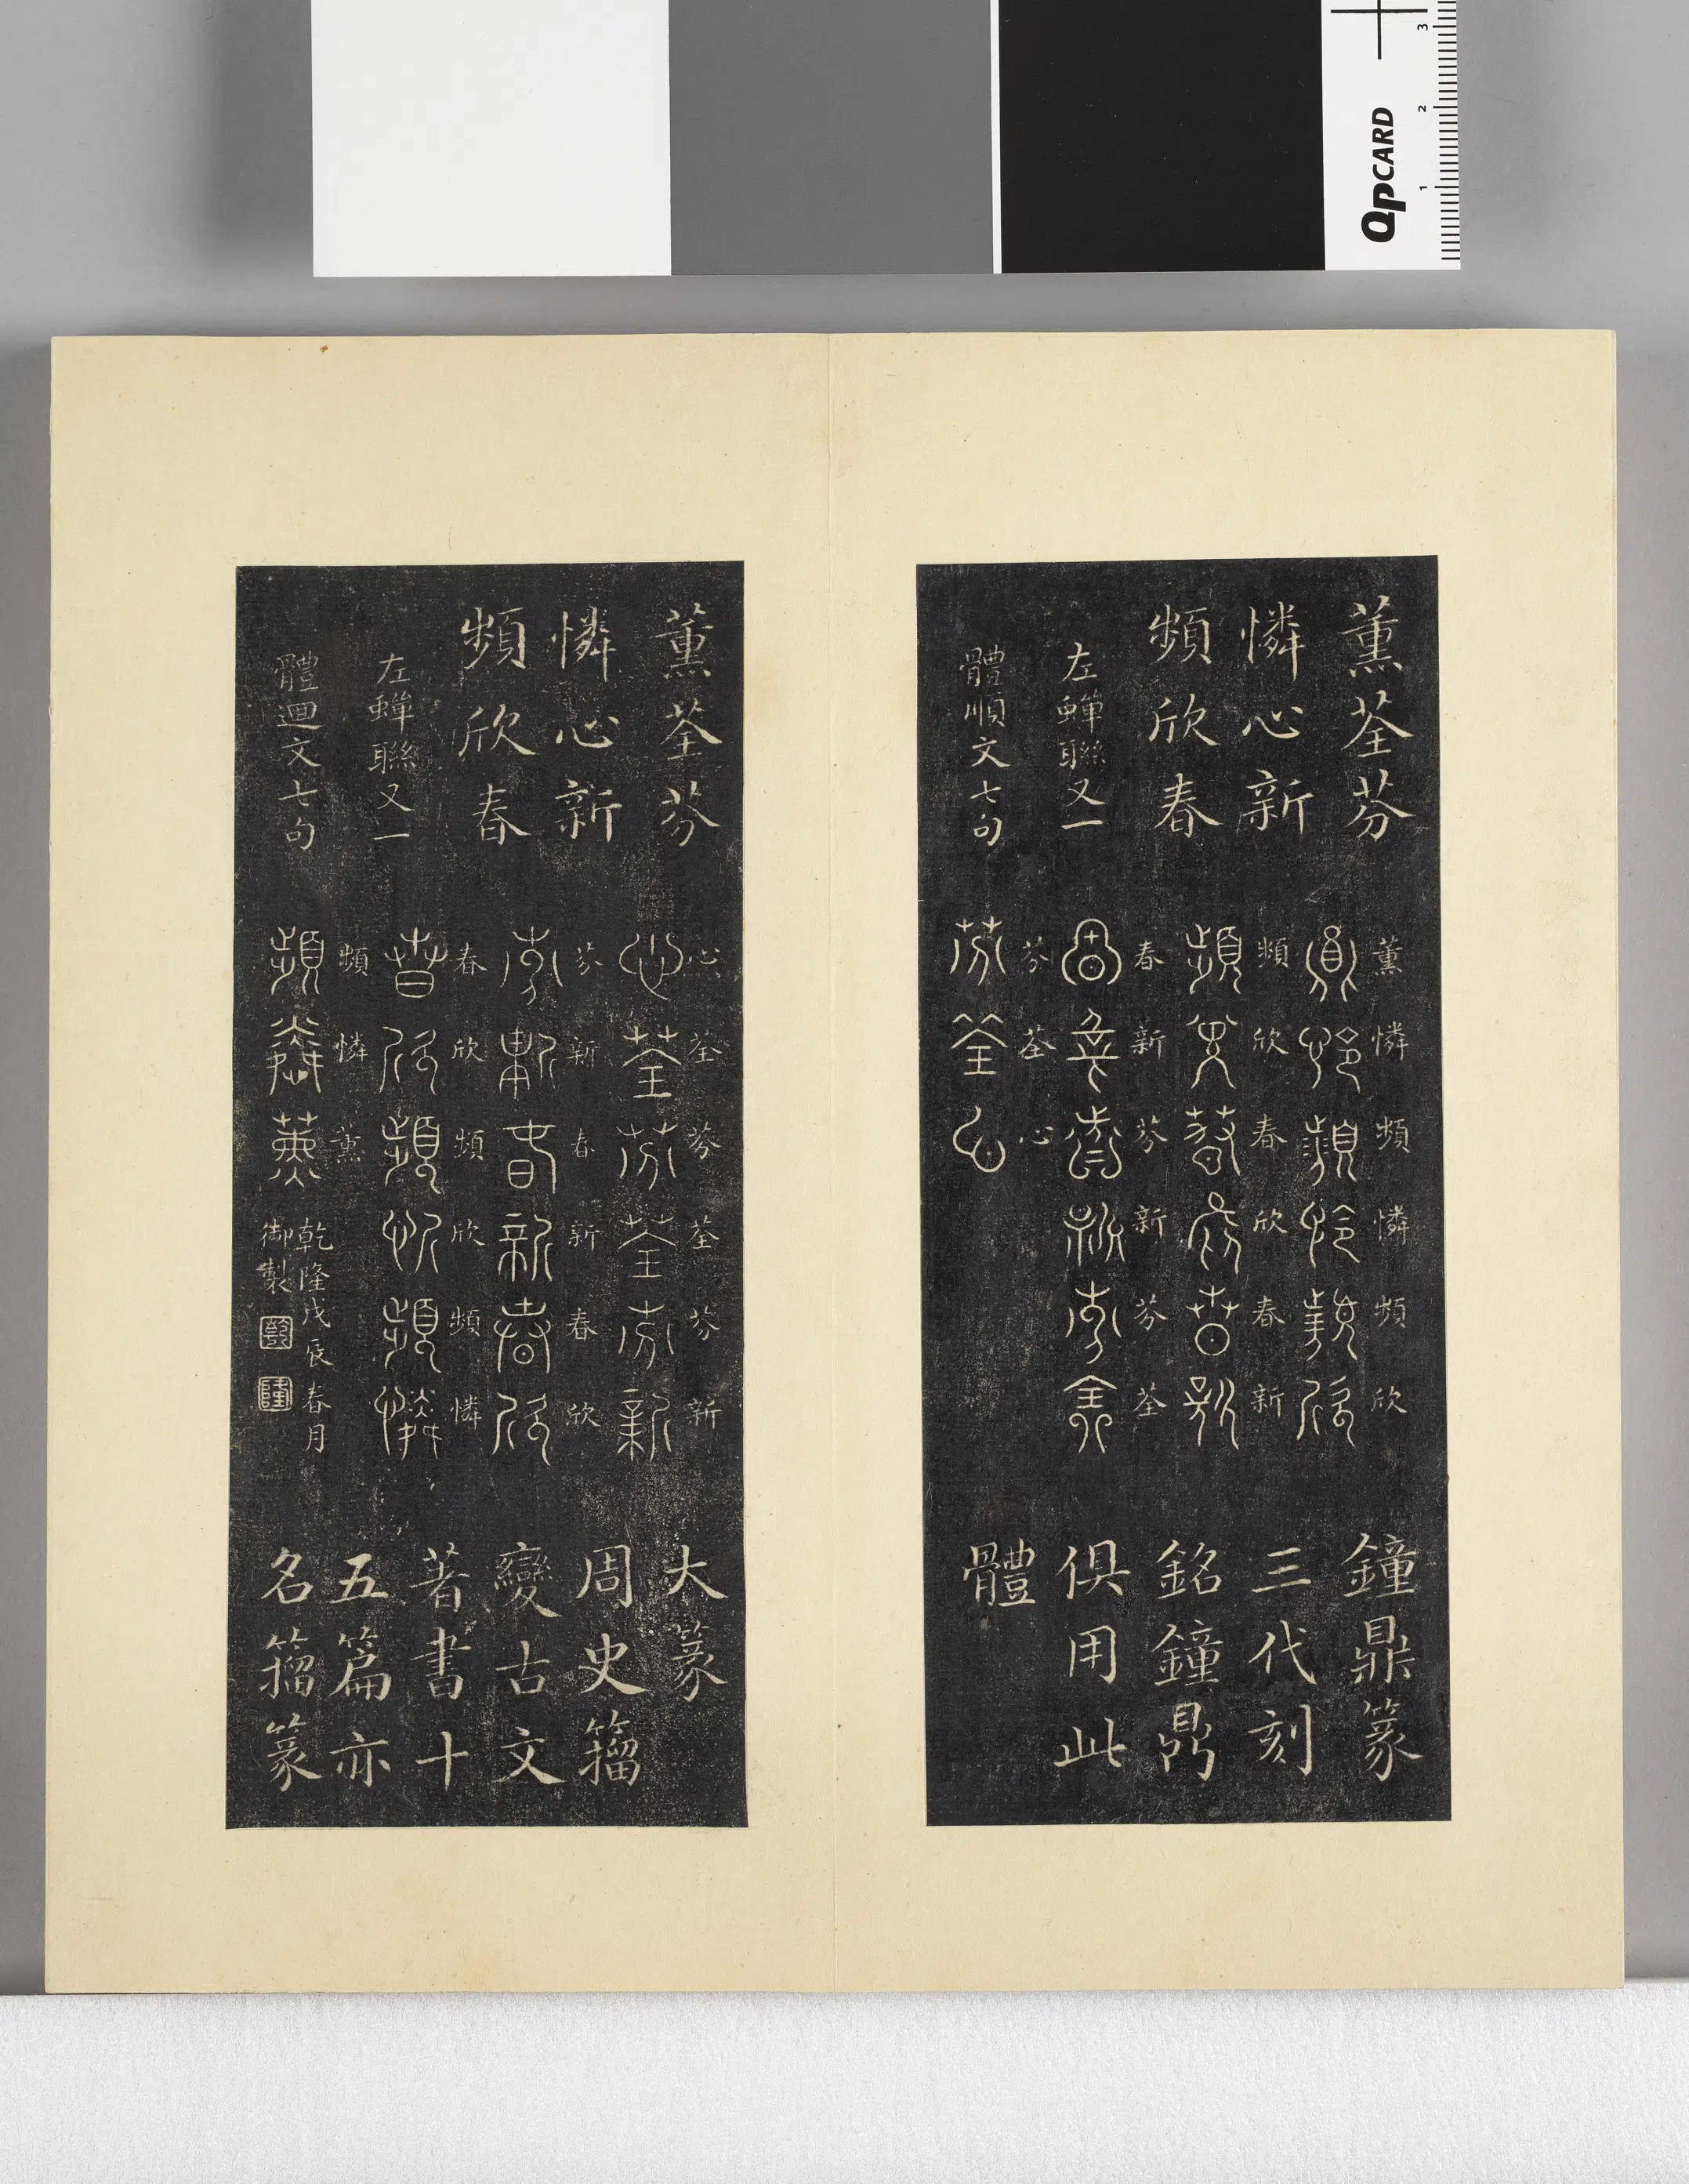 QPCARD
1 2 3
薰荃芬
憐心新
頻欣春
左蟬聯又一
體順文七句
薰憐頻憐頻欣
頻欣春欣春新
春新芬新芬荃
芬荃心
鐘鼎篆
三代刻
銘鐘鼎
俱用此
體
薰荃芬
憐心新
頻欣春
左蟬聯又一
體迴文七句
心荃芬荃芬新
芬新春新春欣
春欣頻欣頻憐
頻憐薰
乾隆戊辰春月
御製
乾
隆
大篆
周史籀
變古文
著書十
五篇亦
名籀篆